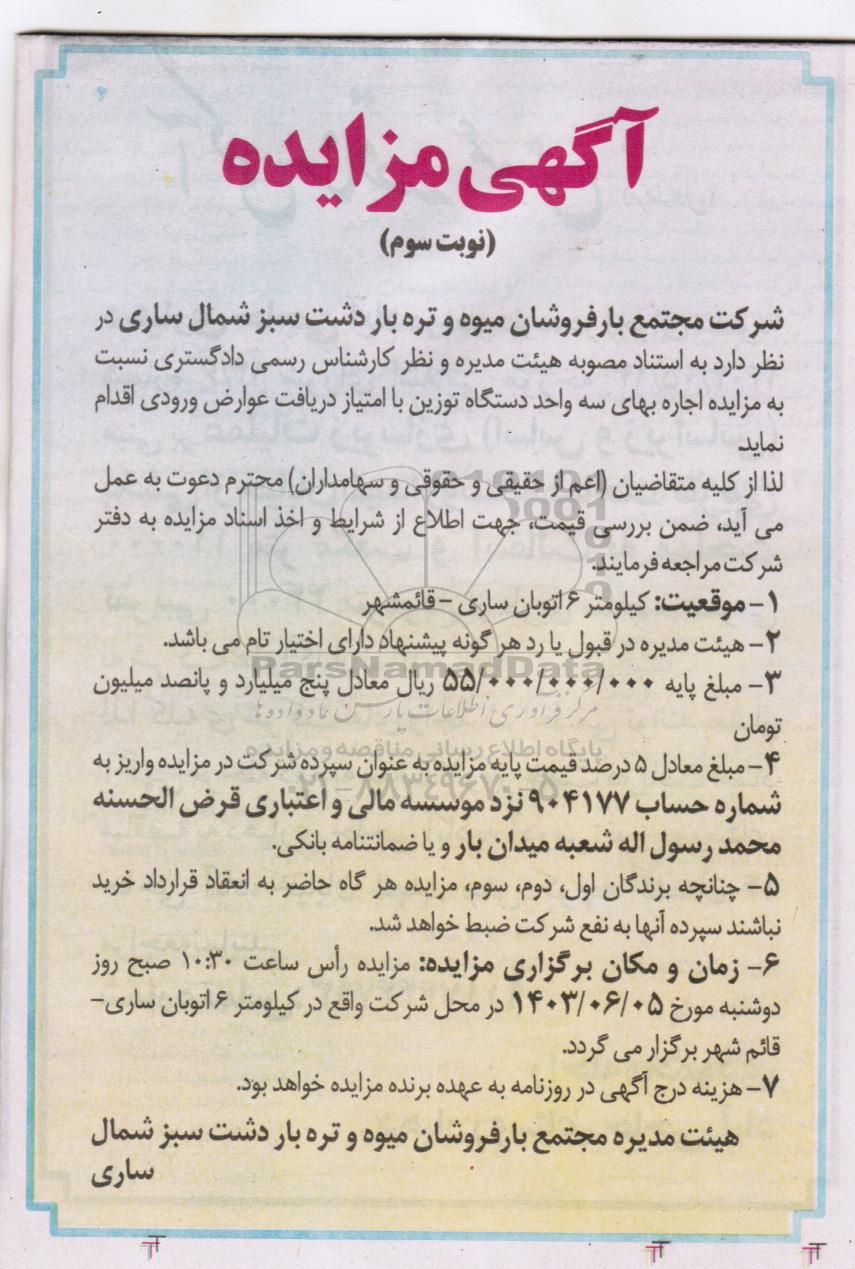 آگهی مزایده
(نوبت سوم)
شرکت مجتمع بارفروشان میوه و تره بار دشت سبز شمال ساری در
نظر دارد به استناد مصوبه هیئت مدیره و نظر کارشناس رسمی دادگستری نسبت
به مزایده اجاره بهای سه واحد دستگاه توزین با امتیاز دریافت عوارض ورودی اقدام
نماید.
لذا از کلیه متقاضیان (اعم از حقیقی و حقوقی و سهامداران) محترم دعوت به عمل
می آید، ضمن بررسی قیمت، جهت اطلاع از شرایط و اخذ اسناد مزایده به دفتر
شرکت مراجعه فرمایند.
۱- موقعیت: کیلومتر ۶ اتوبان ساری - قائمشهر
۲- هیئت مدیره در قبول یا رد هر گونه پیشنهاد دارای اختیار تام می باشد.
ParsNamadData
۳- مبلغ پایه ۵۵/۰۰۰/۰۰۰/۰۰۰ ریال معادل پنج میلیارد و پانصد میلیون
مرکز فرآوری اطلاعات پارس نماد داده ها
تومان
پایگاه اطلاع رسانی مناقصه و مزایده
۴- مبلغ معادل ۵ درصد قیمت پایه مزایده به عنوان سپرده شرکت در مزایده واریز به
شماره حساب ۹۰۴۱۷۷ نزد موسسه مالی و اعتباری قرض الحسنه
محمد رسول اله شعبه میدان بار و یا ضمانتنامه بانکی.
۵- چنانچه برندگان اول، دوم، سوم، مزایده هر گاه حاضر به انعقاد قرارداد خرید
نباشند سپرده آنها به نفع شرکت ضبط خواهد شد.
۶- زمان و مکان برگزاری مزایده: مزایده رأس ساعت ۱۰:۳۰ صبح روز
دوشنبه مورخ ۱۴۰۳/۰۶/۰۵ در محل شرکت واقع در کیلومتر ۶ اتوبان ساری-
قائم شهر برگزار می گردد.
۷- هزینه درج آگهی در روزنامه به عهده برنده مزایده خواهد بود.
هیئت مدیره مجتمع بارفروشان میوه و تره بار دشت سبز شمال
ساری